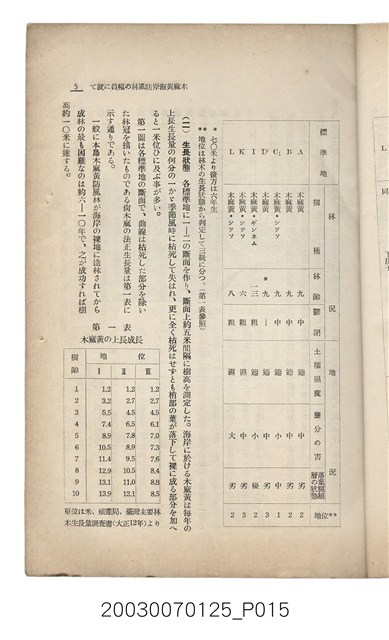 木麻黃海岸防風林の幅員に就て 5
標準地 樹種 林齡 鬱閉 土壤濕度 鹽分の害 落葉腐植層の狀態 地位**
林況 地況
A 木麻黃 九 中 適 中 劣 2
B 木麻黃 九 中 適 中 劣 3
C₁ 木麻黃 九 中 適 小 中 1
D' 木麻黃 *九 | 適 中 劣 3
I 木麻黃・ギンネム 一三 粗 適 小 優 2
K 木麻黃・シツソ 六 粗 濕 中 劣 3
L 木麻黃・シツソ 八 粗 濕 大 劣 2
* 七〇米より後方は六年生
** 地位は林木の生長狀態から判定して三級に分つ。(第一表參照)
(二) 生長狀態 各標準地に一―二の斷面を作り、斷面上約五米間隔に樹高を測定した。海岸に於ける木麻黃は每年の
上長生長量の何分の一かと季節風時に枯死して失はれ、更に全く枯死はせずとも梢部の葉が落下して裸に成る部分を加へ
ると一米位ひに及ぶ事が多い。
第一圖は各標準地の斷面で、曲線は枯死した部分を除い
た林冠を描いたものである尙木麻黃の法正生長量は第一表に
示す通りである。
一般に本島木麻黃防風林が海岸の裸地に造林されてから
成林の最も困難なのは約六―一〇年で、之が成功すれば樹
高約一〇米に達する。
第一表
木麻黃の上長成長
樹齡 地位
I II III
1 1.2 1.2 1.2
2 3.2 2.7 2.7
3 5.5 4.5 4.5
4 7.4 6.5 6.1
5 8.9 7.8 7.0
6 10.5 8.9 7.3
7 11.4 9.5 7.6
8 12.9 10.5 8.4
9 13.1 11.0 8.8
10 13.9 12.1 8.5
單位は米、殖產局、臺灣主要林
木生長量調査書(大正12年)より
20030070125_P015